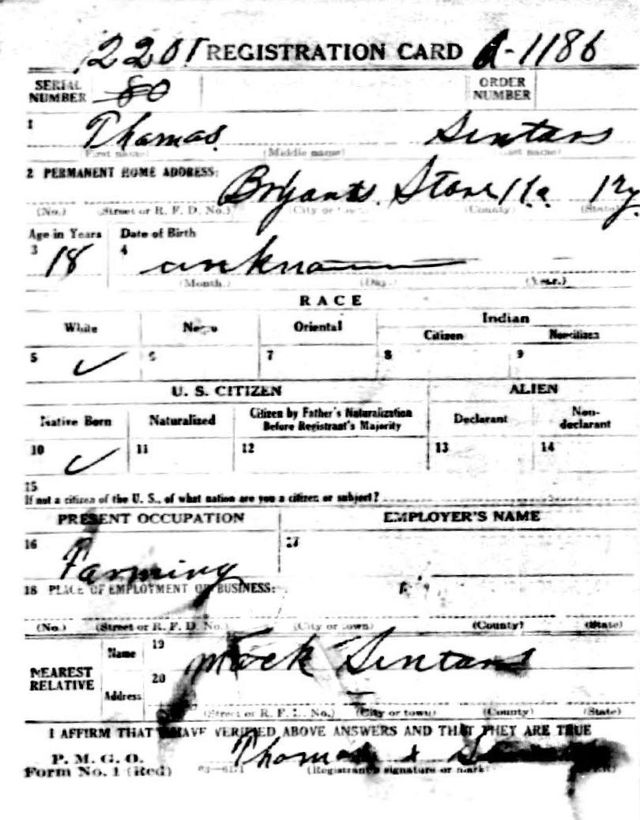 2201 REGISTRATION CARD A-1186
SERIAL NUMBER 80 ORDER NUMBER
1 Thomas Sintans
(First name) (Middle name) (Last name)
2 PERMANENT HOME ADDRESS: Bryants Store Ky
(No.) (Street or R. F. D. No.) (City or town) (County) (State)
Age in Years Date of Birth
3 18 4 unknown
(Month.) (Day.) (Year.)
RACE
White Negro Oriental Indian
Citizen Noncitizen
5 ✓ 6 7 8 9
U. S. CITIZEN ALIEN
Native Born Naturalized Citizen by Father's Naturalization Before Registrant's Majority Declarant Non-declarant
10 ✓ 11 12 13 14
15
If not a citizen of the U. S., of what nation are you a citizen or subject?
PRESENT OCCUPATION EMPLOYER'S NAME
16 Farming 17
18 PLACE OF EMPLOYMENT OR BUSINESS:
(No.) (Street or R. F. D. No.) (City or town) (County) (State)
NEAREST RELATIVE Name 19 Mock Sintans
Address 20
(Street or R. F. D. No.) (City or town) (County) (State)
I AFFIRM THAT I HAVE VERIFIED ABOVE ANSWERS AND THAT THEY ARE TRUE
P. M. G. O.
Form No. 1 (Red) Thomas x
(Registrant's signature or mark)